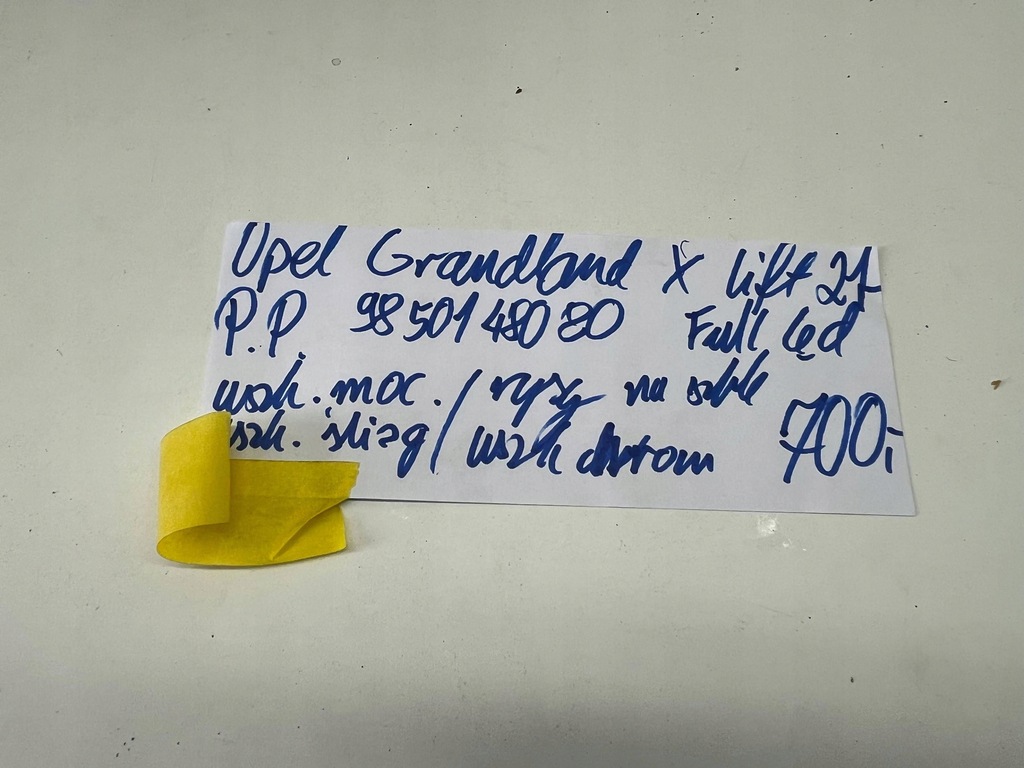 Opel Grandland X lift 21
P.P. 98 501 480 80 Full led
uszk. moc. / rysy na szkle
uszk. ślizg / uszk chrom 700,-